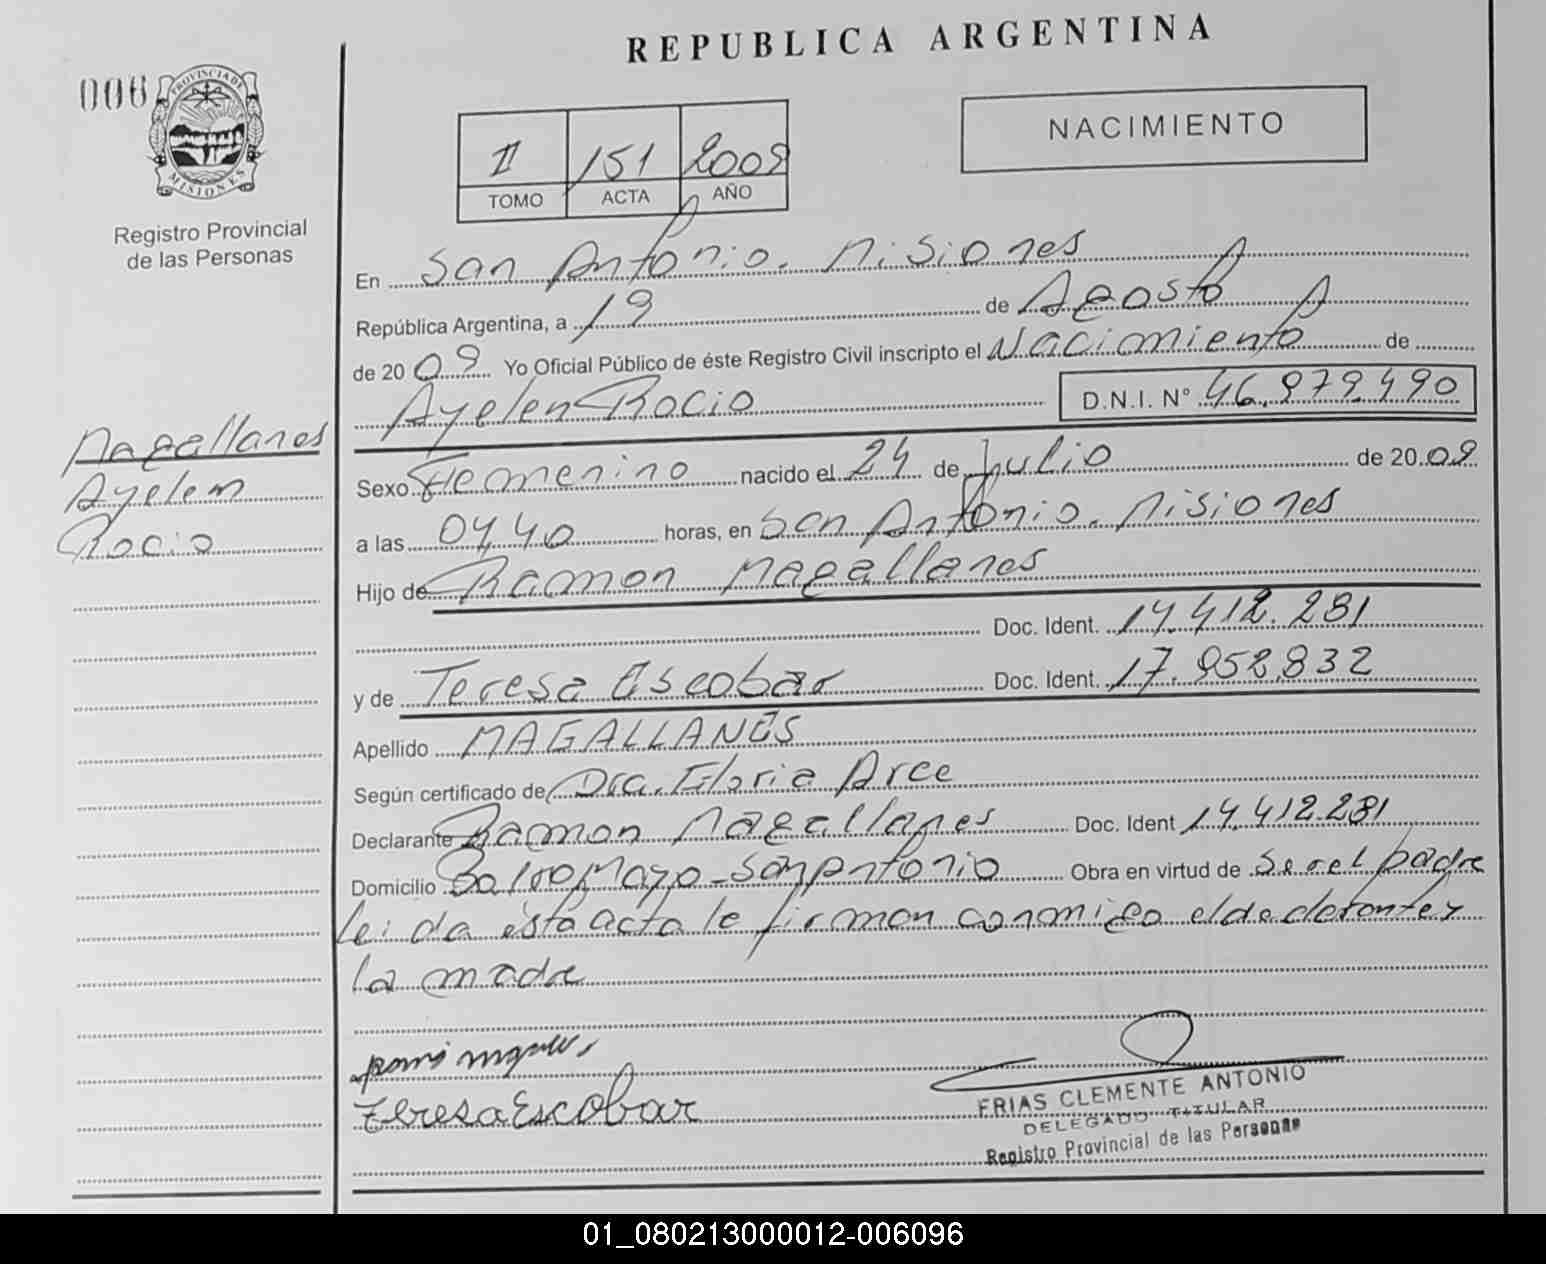 REPUBLICA ARGENTINA
006
PROVINCIA DE
MISIONES
Registro Provincial
de las Personas
II 151 2009
TOMO ACTA AÑO
NACIMIENTO
En San Antonio. Misiones
República Argentina, a 19 de Agosto
de 2009 Yo Oficial Público de éste Registro Civil inscripto el Nacimiento de
Ayelen Rocio D.N.I. N° 46.979.490
Magallanes
Ayelem
Rocio
Sexo Femenino nacido el 24 de Julio de 2009
a las 04,40 horas, en San Antonio. Misiones
Hijo de Ramon Magallanes
Doc. Ident. 14.412.281
y de Teresa Escobar Doc. Ident. 17.952.832
Apellido MAGALLANES
Según certificado de Dra. Gloria Arce
Declarante Ramon Magallanes Doc. Ident 14.412.281
Domicilio Ba 1ro Mayo - San Antonio Obra en virtud de Ser el padre
Leida esta acta le firman conmigo el y
la madre
Teresa Escobar
FRIAS CLEMENTE ANTONIO
DELEGADO TITULAR
Registro Provincial de las Personas
01_080213000012-006096